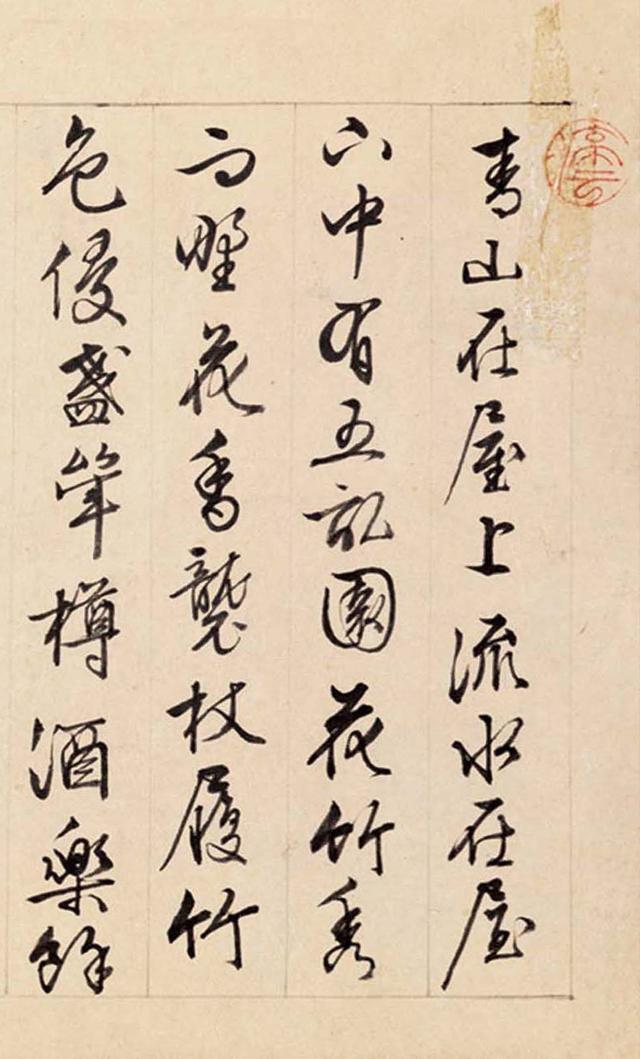 青山在屋上流水在屋
下中有五畝園花竹秀
而野花香襲杖履竹
色侵盞斝樽酒樂餘